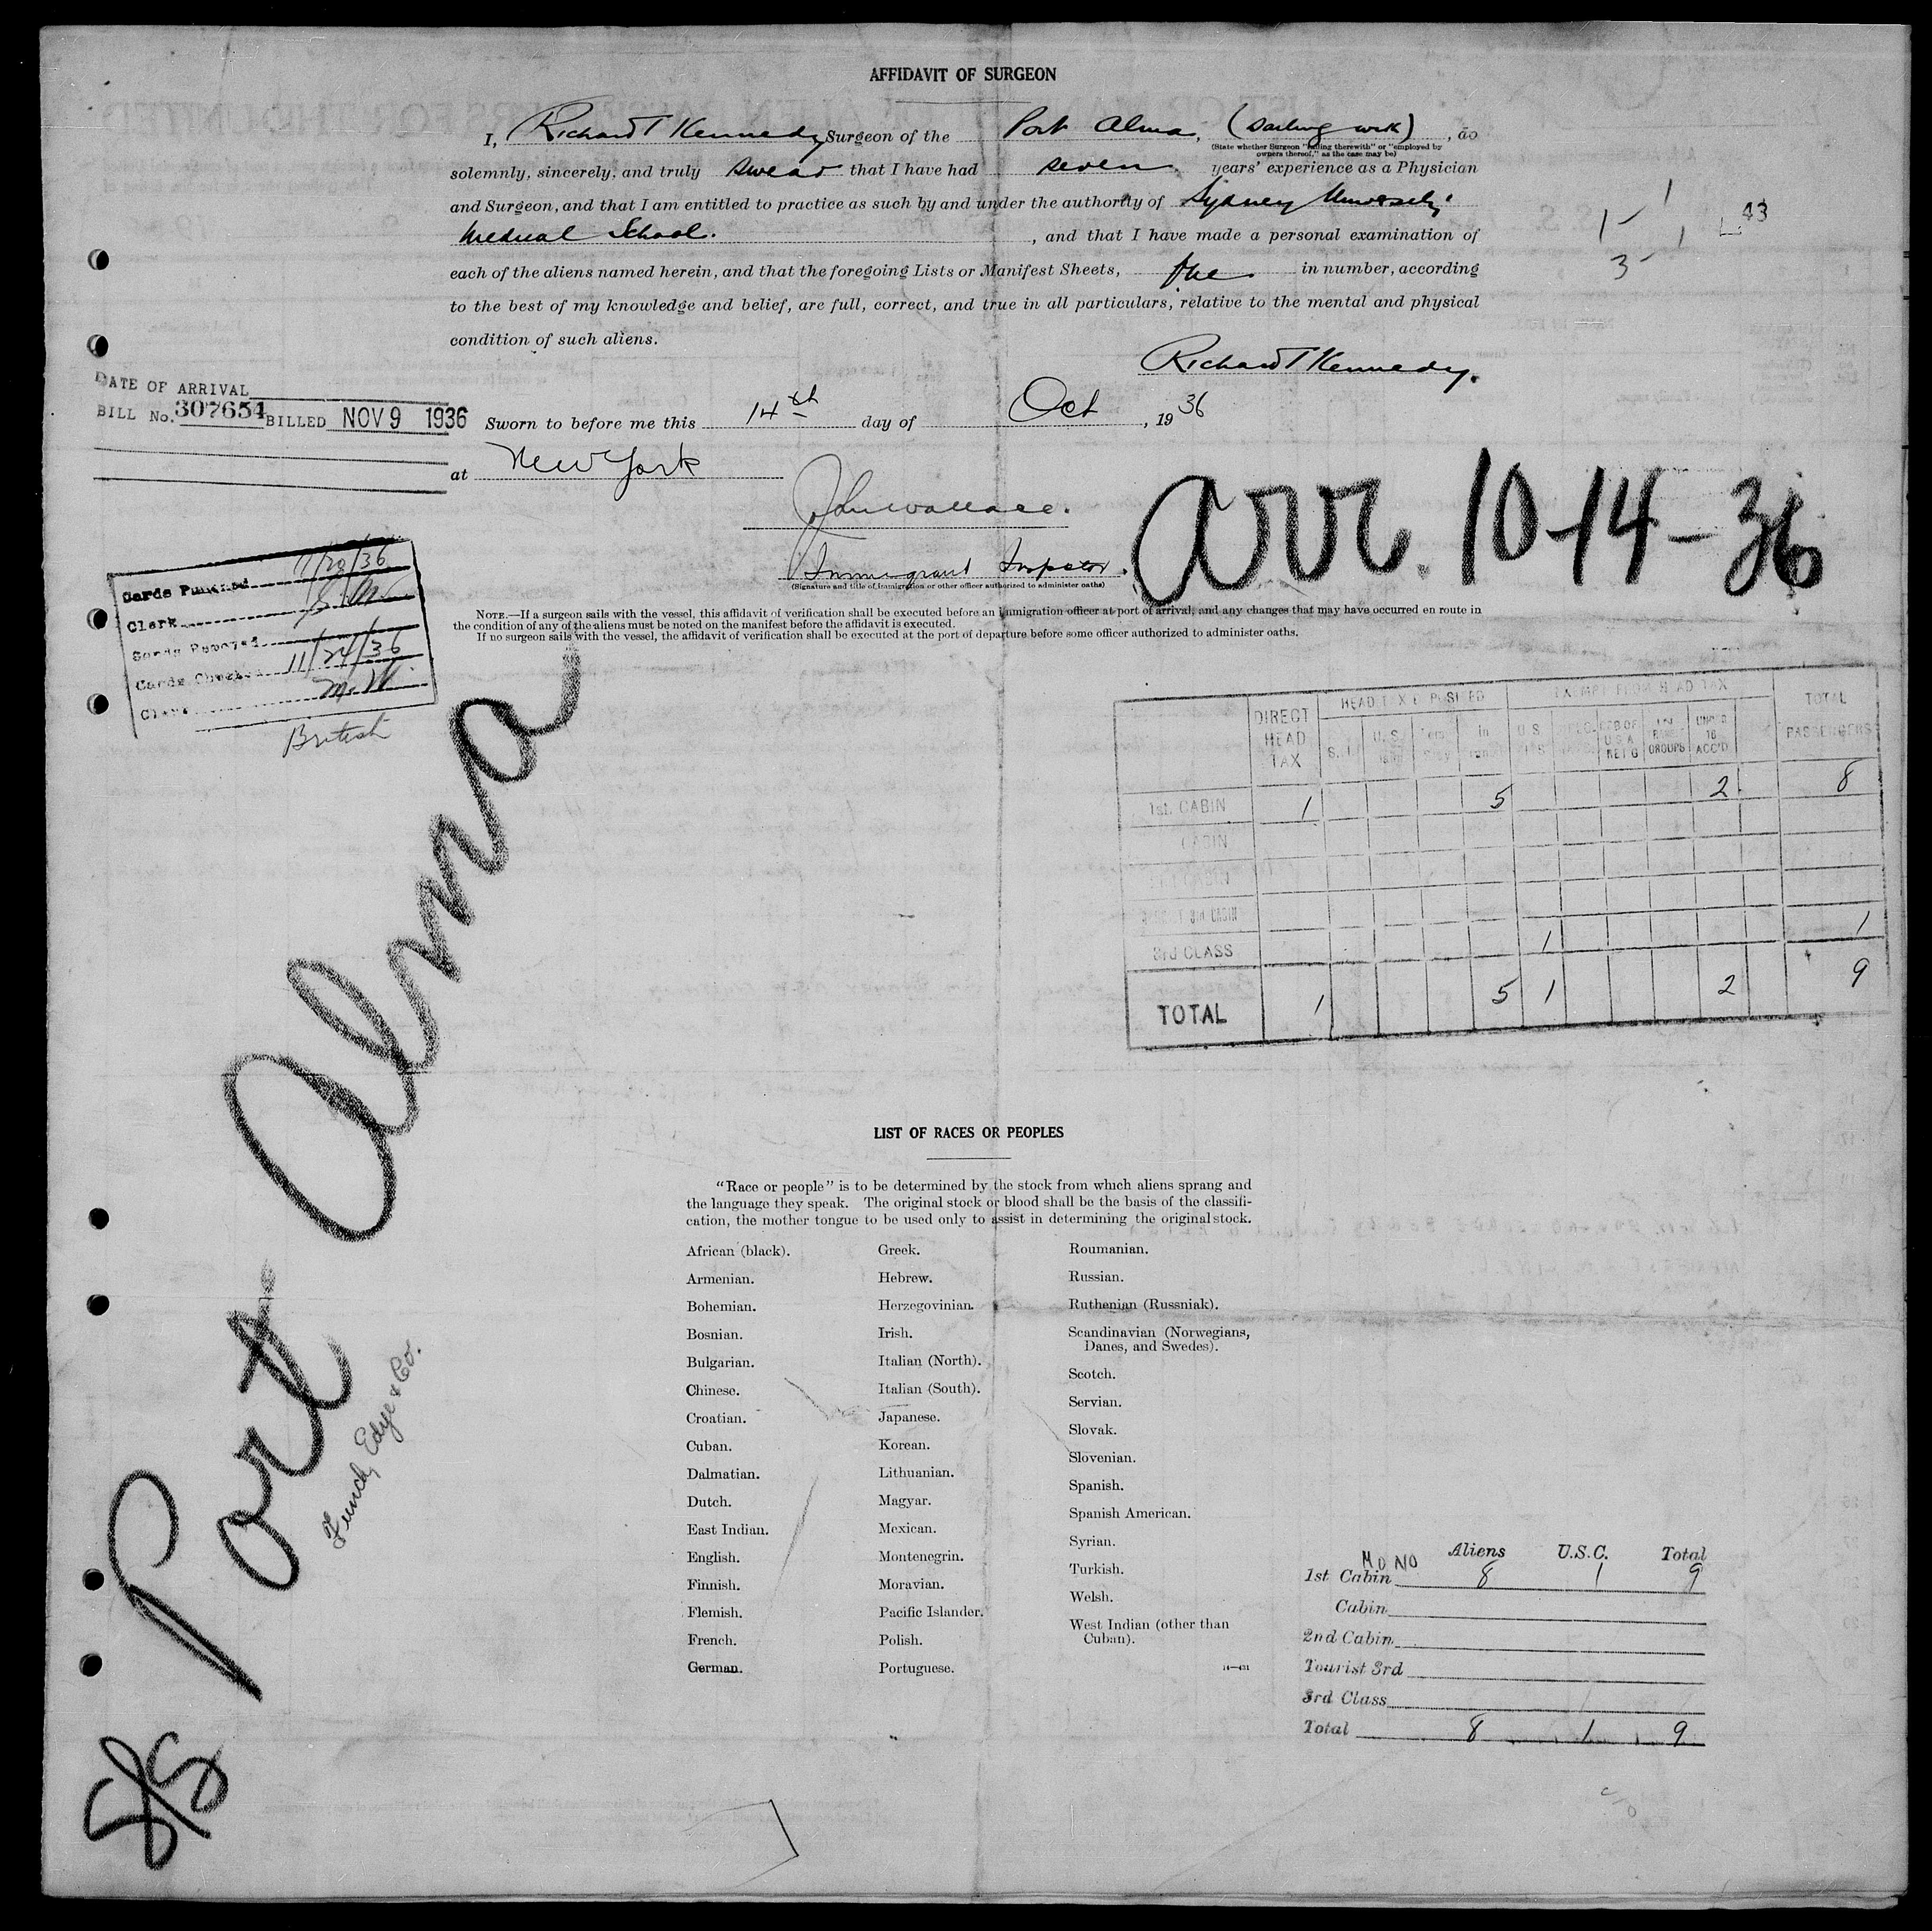 AFFIDAVIT OF SURGEON
I, Richard T Kennedy Surgeon of the Port Alma, (Sailing with), do
(State whether Surgeon "sailing therewith" or "employed by
owners thereof," as the case may be)
solemnly, sincerely, and truly swear that I have had seven years' experience as a Physician
and Surgeon, and that I am entitled to practice as such by and under the authority of Sydney University
Medical School. , and that I have made a personal examination of
each of the aliens named herein, and that the foregoing Lists or Manifest Sheets, in number, according
to the best of my knowledge and belief, are full, correct, and true in all particulars, relative to the mental and physical
condition of such aliens.
Richard T Kennedy.
1- 1
1 43
3-
DATE OF ARRIVAL
BILL No. 307654 BILLED NOV 9 1936
Sworn to before me this 14th day of Oct, 1936
at New York
John Wallace.
Immigrant Inspector.
(Signature and title of immigration or other officer authorized to administer oaths)
Arr. 10-14-36
Cards Punched 11/23/36
Clerk
Cards Removed
Cards Checked 11/24/36
Clerk McW.
British
NOTE.—If a surgeon sails with the vessel, this affidavit of verification shall be executed before an immigration officer at port of arrival, and any changes that may have occurred en route in
the condition of any of the aliens must be noted on the manifest before the affidavit is executed.
If no surgeon sails with the vessel, the affidavit of verification shall be executed at the port of departure before some officer authorized to administer oaths.
DIRECT HEAD TAX HEAD TAX DEPOSITED EXEMPT FROM HEAD TAX TOTAL PASSENGERS
S.I. U.S. In U.S. GROUPS UNDER 16 ACC'D
1st. CABIN 1 5 2 8
CABIN
CABIN
3rd CABIN
3rd CLASS 1 1
TOTAL 1 5 1 2 9
S/S Port Alma
Funch, Edye & Co.
LIST OF RACES OR PEOPLES
"Race or people" is to be determined by the stock from which aliens sprang and
the language they speak. The original stock or blood shall be the basis of the classifi-
cation, the mother tongue to be used only to assist in determining the original stock.
African (black).
Armenian.
Bohemian.
Bosnian.
Bulgarian.
Chinese.
Croatian.
Cuban.
Dalmatian.
Dutch.
East Indian.
English.
Finnish.
Flemish.
French.
German.
Greek.
Hebrew.
Herzegovinian.
Irish.
Italian (North).
Italian (South).
Japanese.
Korean.
Lithuanian.
Magyar.
Mexican.
Montenegrin.
Moravian.
Pacific Islander.
Polish.
Portuguese.
Roumanian.
Russian.
Ruthenian (Russniak).
Scandinavian (Norwegians,
Danes, and Swedes).
Scotch.
Servian.
Slovak.
Slovenian.
Spanish.
Spanish American.
Syrian.
Turkish.
Welsh.
West Indian (other than
Cuban).
14—431
Aliens U.S.C. Total
MONO
1st Cabin 8 1 9
Cabin
2nd Cabin
Tourist 3rd
3rd Class
Total 8 1 9